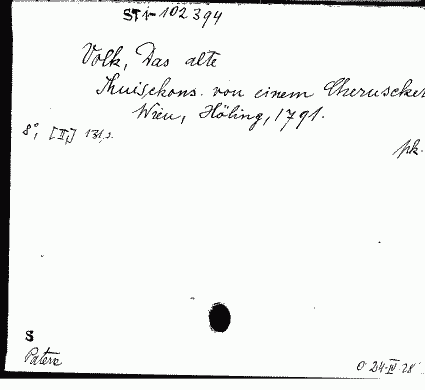 STi-102394
Volk, Das alte
Thuiskons. von einem Cherusker
Wien, Höling, 1791.
8°, [II,] 131, s.
pk.
S
Patera
0 24-IV 28